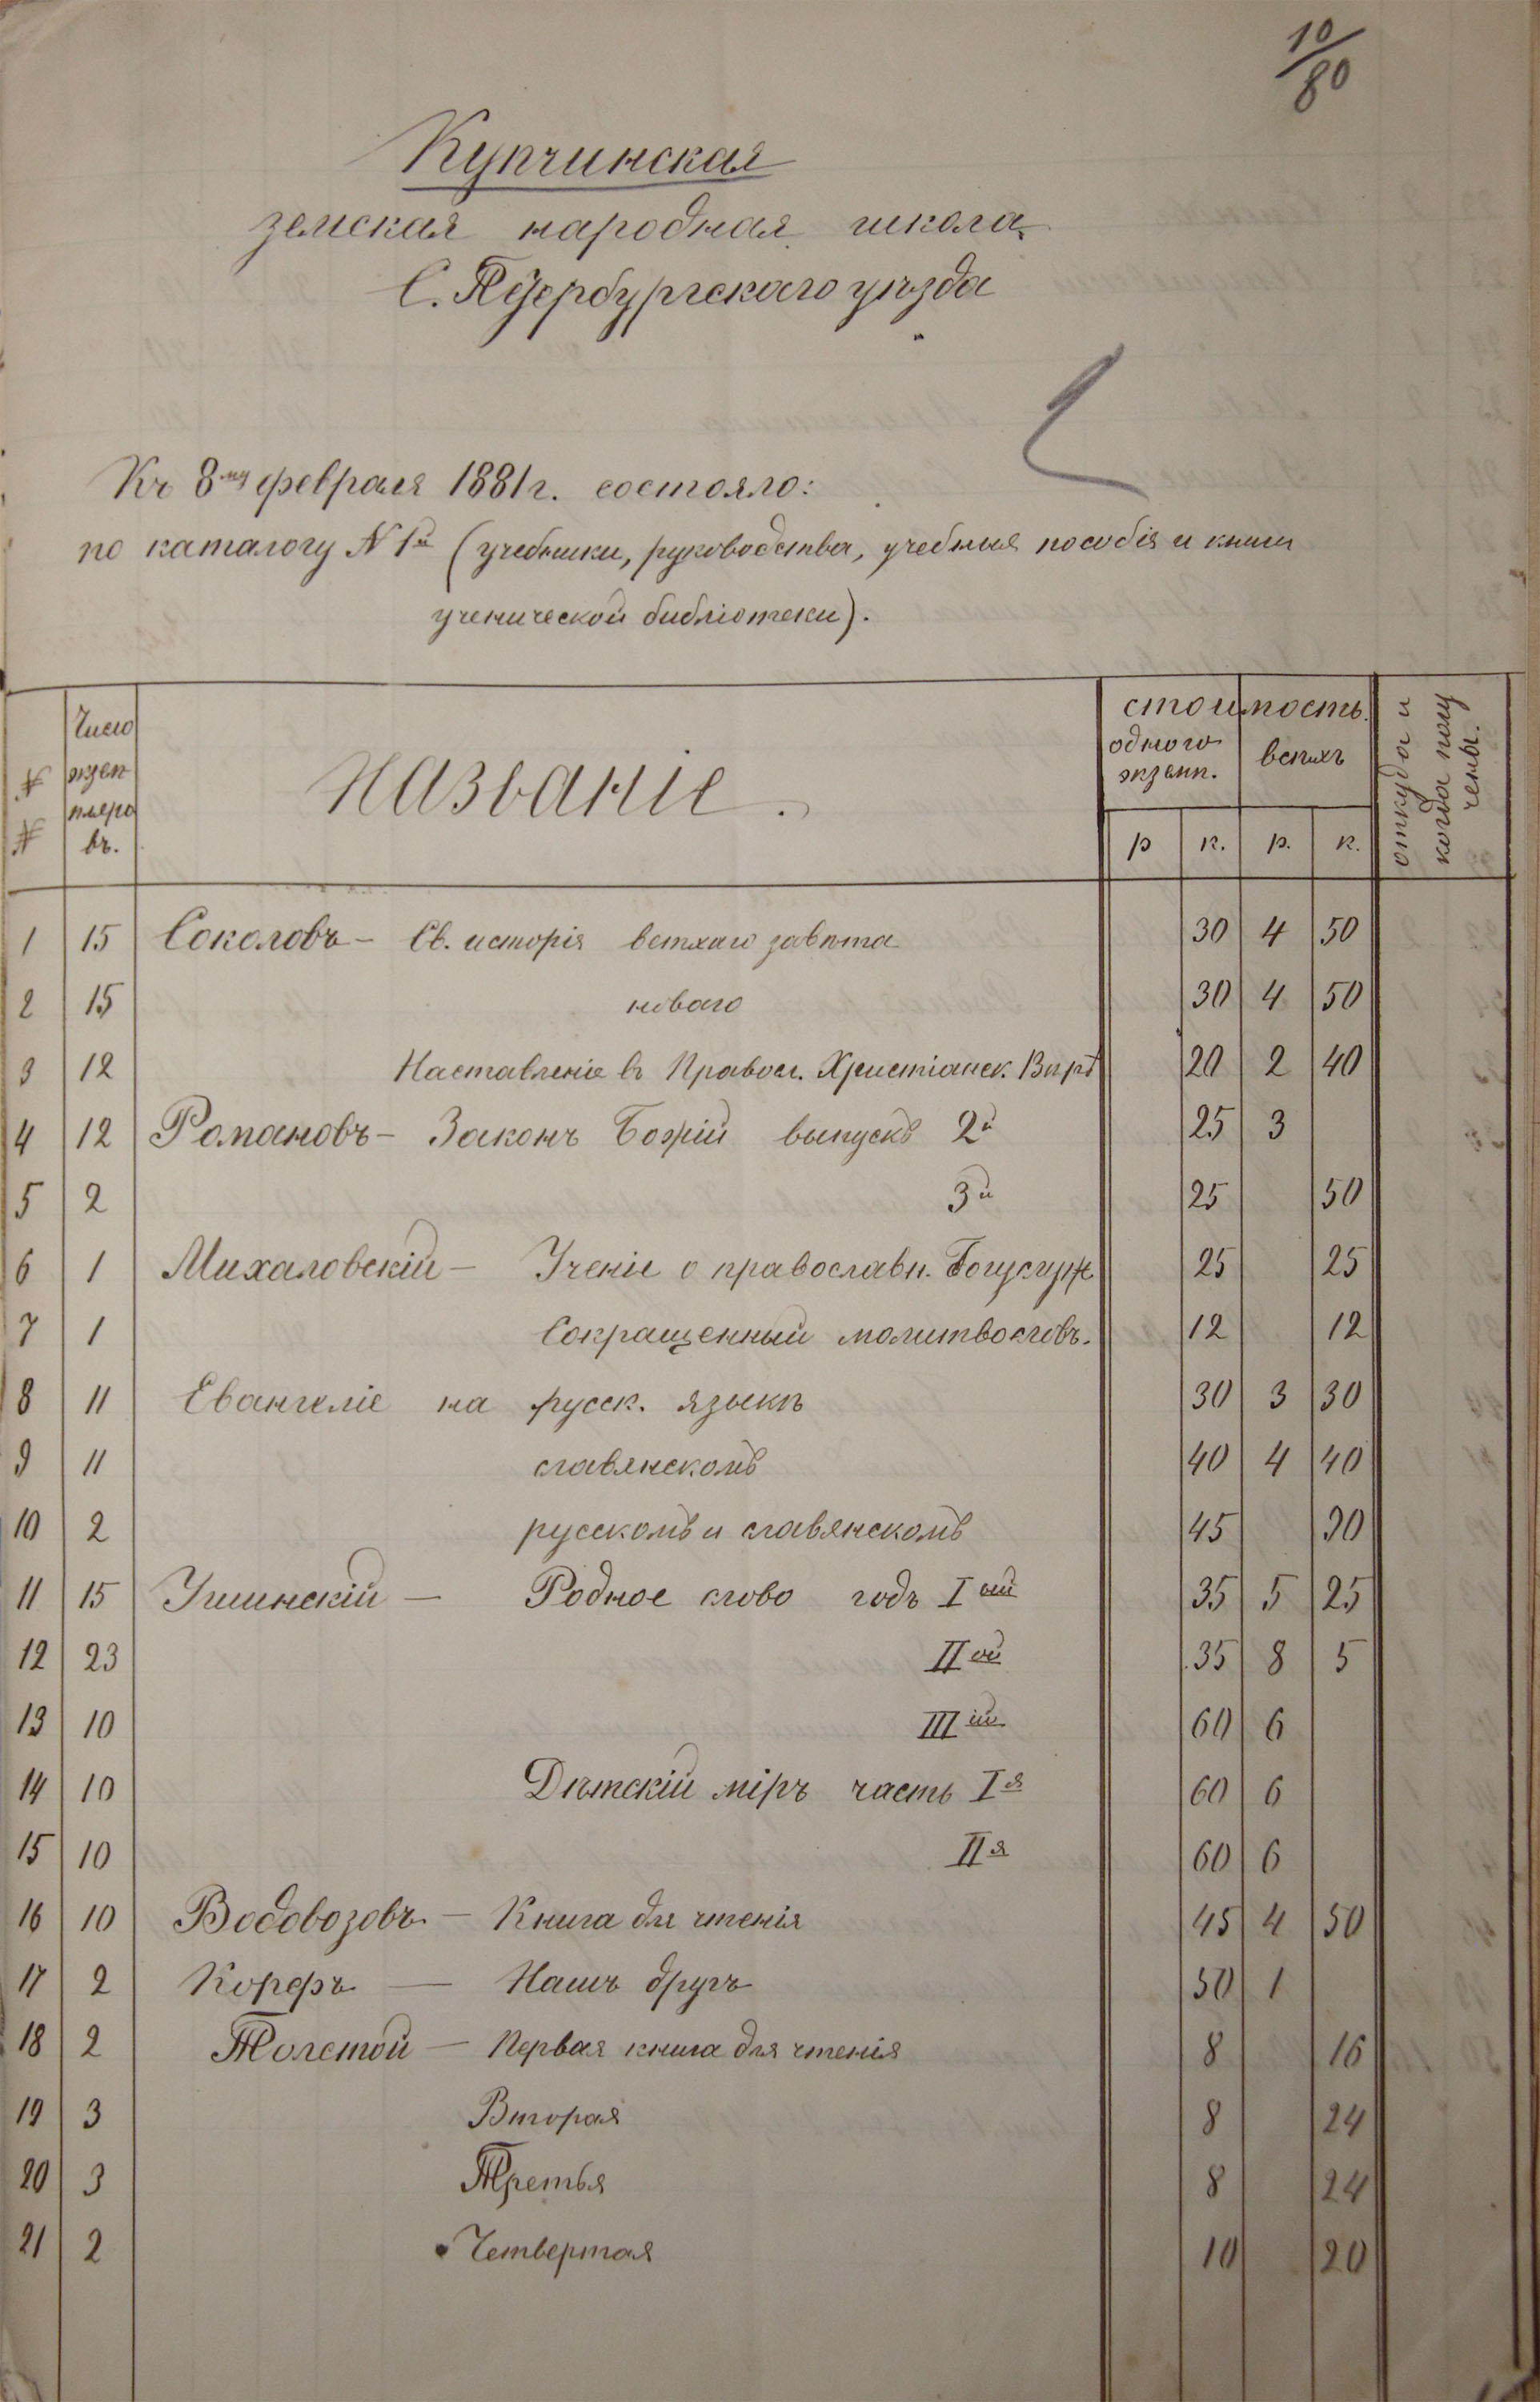 10/80
Купчинская
земская народная школа
С. Петербургскаго уѣзда
Къ 8му февраля 1881 г. состояло:
по каталогу N 1й (учебники, руководства, учебныя пособія и книги
ученической библіотеки).
№№ Число экземпляровъ. Названіе. стоимость. откуда и когда получены.
одного экземп. всѣхъ
р к. р. к.
1 15 Соколовъ - Св. исторія ветхаго завѣта 30 4 50
2 15 новаго 30 4 50
3 12 Наставленіе въ Правосл. Христіанск. Вѣрѣ 20 2 40
4 12 Романовъ - Законъ Божій выпускъ 2й 25 3
5 2 3й 25 50
6 1 Михаловскій - Ученіе о православн. Богуслуж 25 25
7 1 Сокращенный молитвословъ. 12 12
8 11 Евангеліе на русск. языкѣ 30 3 30
9 11 славянскомъ 40 4 40
10 2 русскомъ и славянскомъ 45 90
11 15 Ушинскій - Родное слово годъ Iый 35 5 25
12 23 IIой 35 8 5
13 10 IIIій 60 6
14 10 Дѣтскій міръ часть Iя 60 6
15 10 IIя 60 6
16 10 Водовозовъ - Книга для чтенія 45 4 50
17 2 Корфъ - Нашъ другъ 50 1
18 2 Толстой - Первая книга для чтенія 8 16
19 3 Вторая 8 24
20 3 Третья 8 24
21 2 Четвертая 10 20